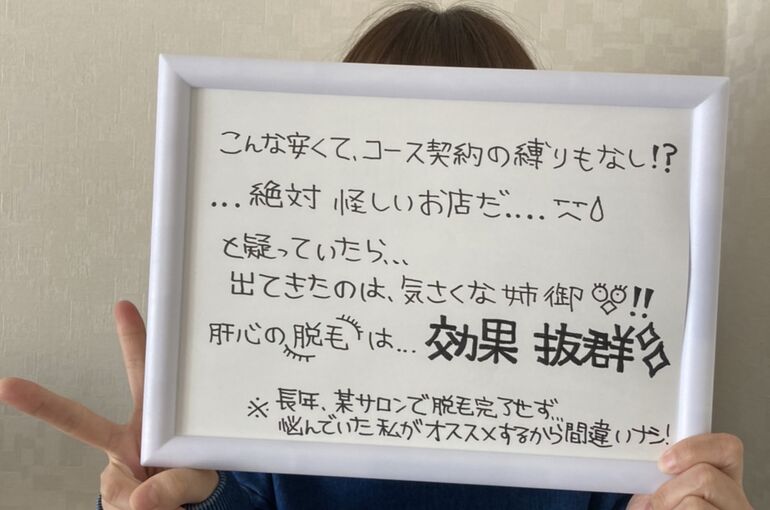 こんな安くて、コース契約の縛りもなし!?
...絶対 怪しいお店だ....
と疑っていたら、、、
出てきたのは、気さくな姉御!!
肝心の脱毛は... 効果 抜群
※ 長年、某サロンで脱毛完了せず...
悩んでいた私がオススメするから間違いナシ!